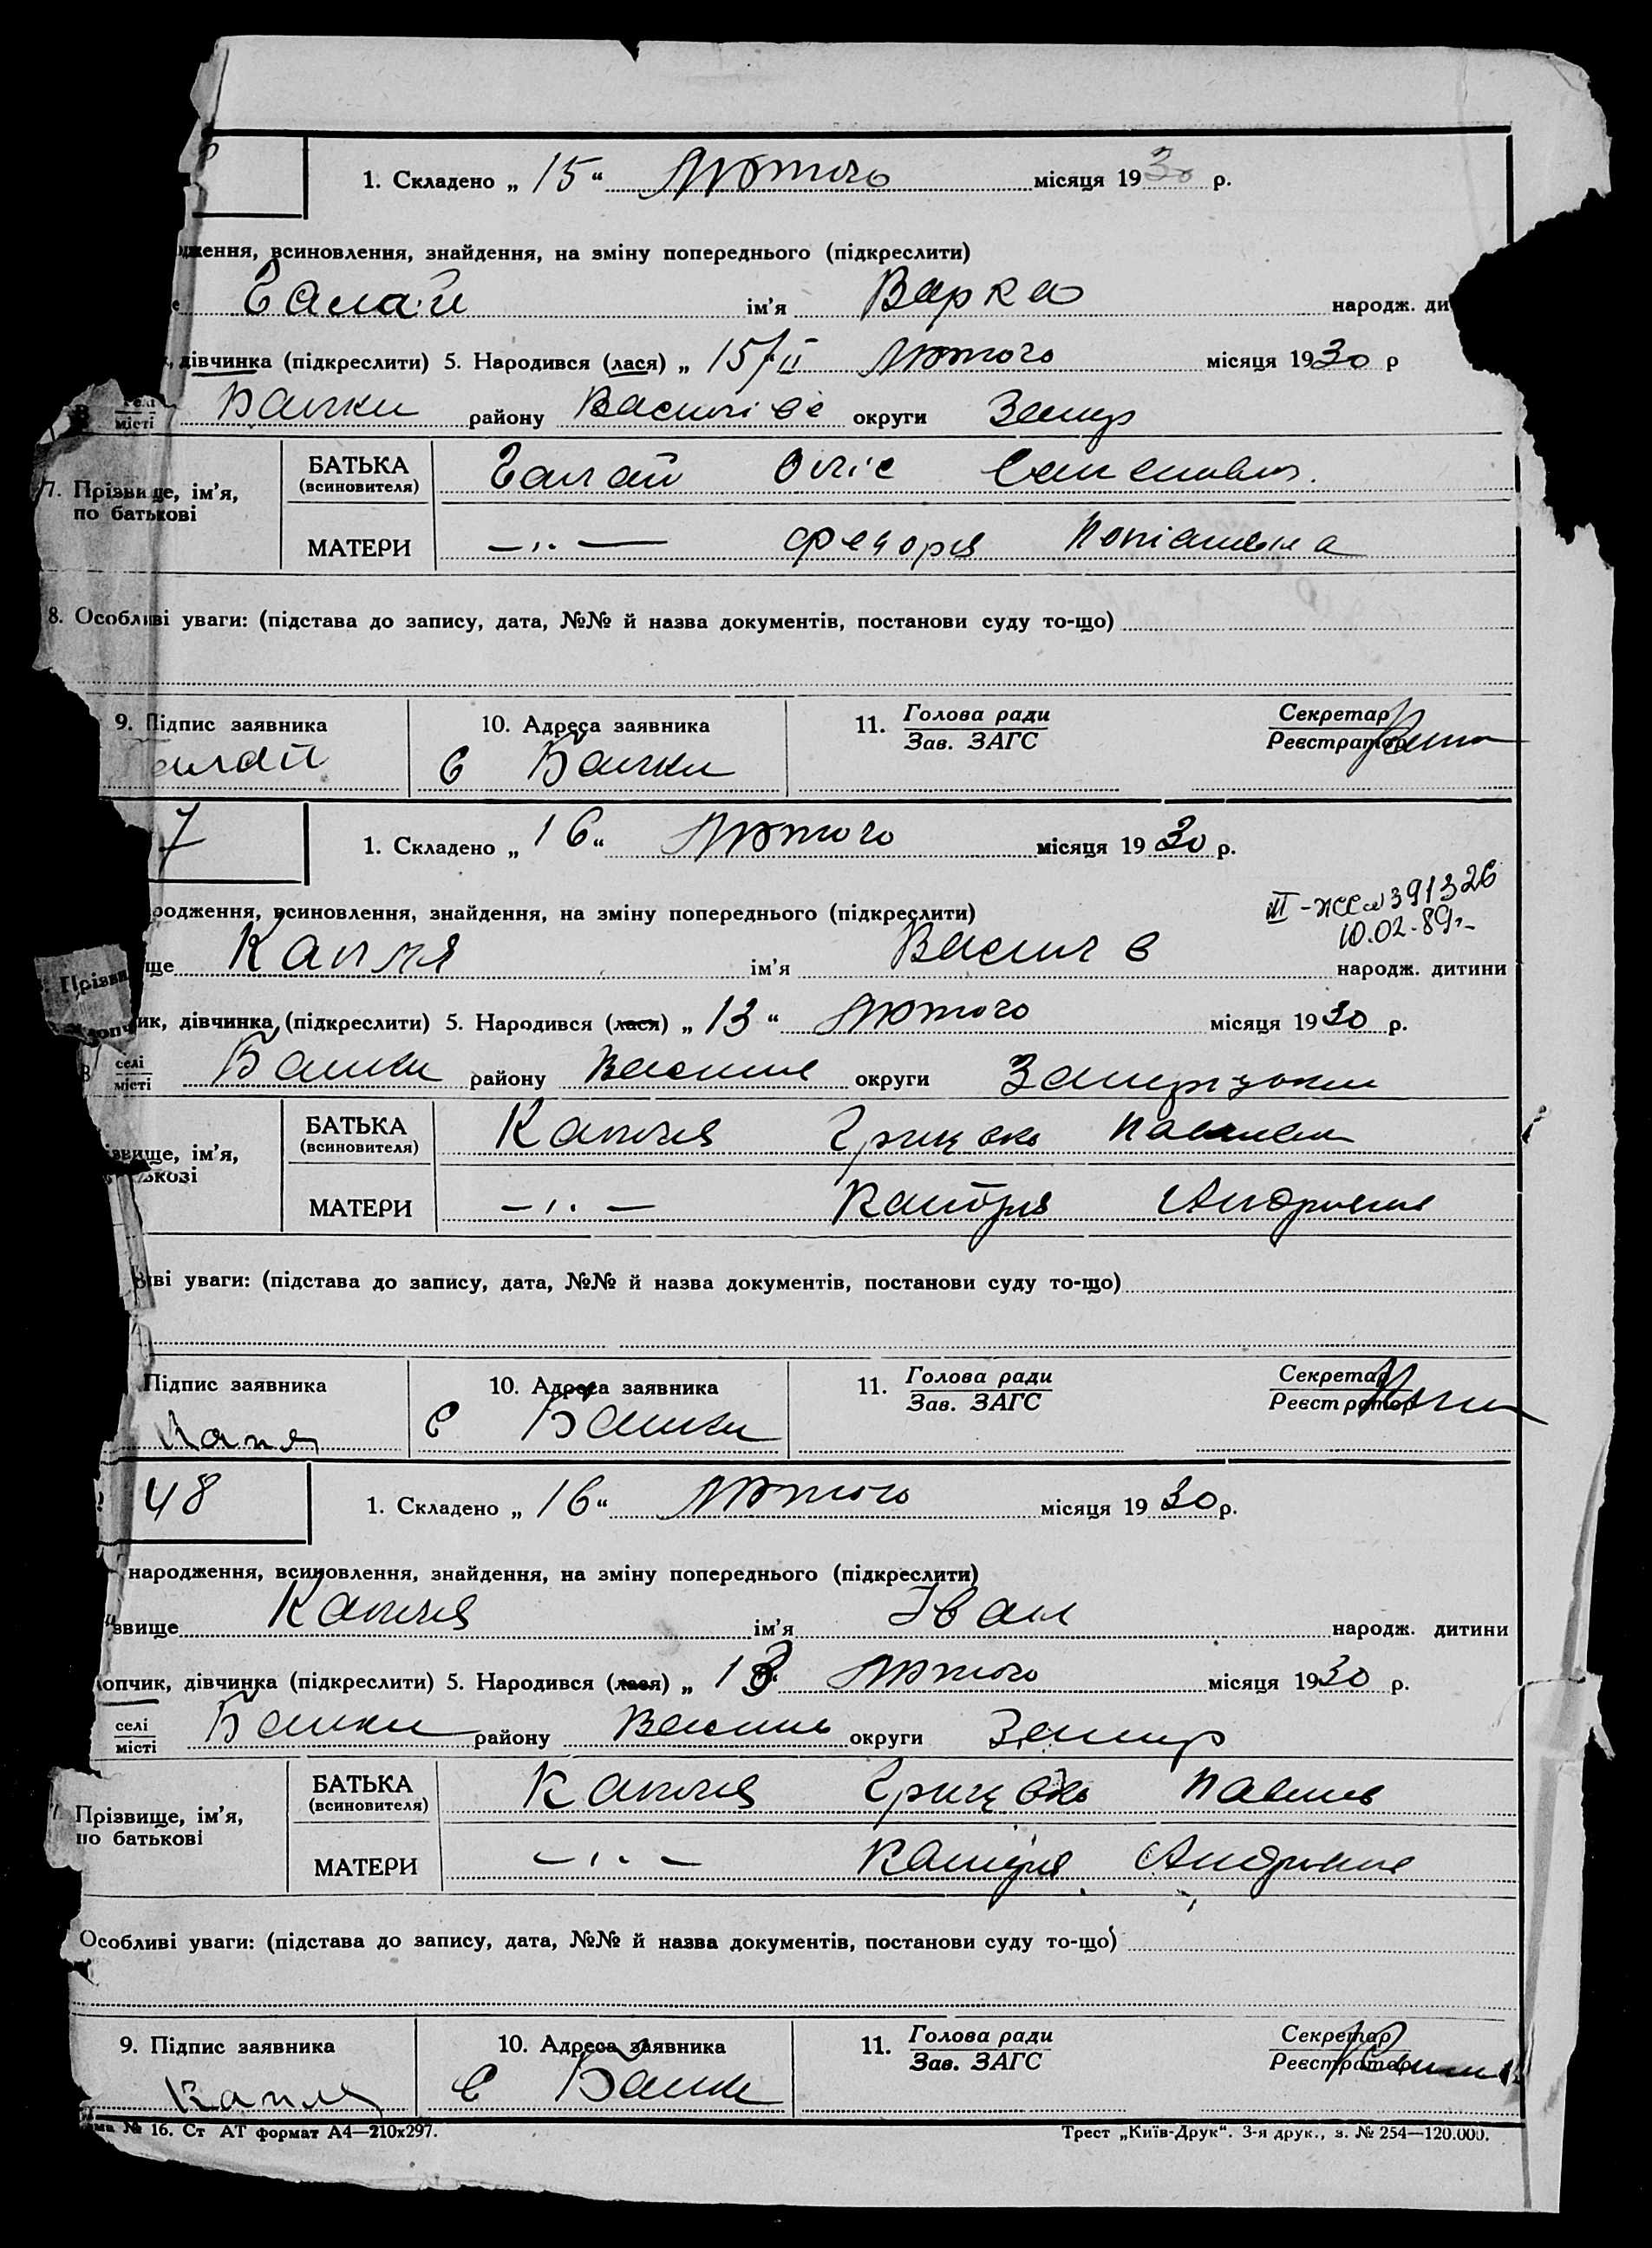 1. Складено „ 15 “ Лютого місяця 1930 р.
дження, всиновлення, знайдення, на зміну попереднього (підкреслити)
Галай ім'я Варка народж. ди
дівчинка (підкреслити) 5. Народився (лася) „ 15/II Лютого місяця 1930 р
В селі
місті Балки району Василівс округи Запор
7. Прізвище, ім'я,
по батькові
БАТЬКА
(всиновителя) Галай Оліс Семенович.
МАТЕРИ —„— Федория
8. Особливі уваги: (підстава до запису, дата, №№ й назва документів, постанови суду то-що)
9. Підпис заявника
алай
10. Адреса заявника
с Балки
11. Голова ради
Зав. ЗАГС
Секретар
Реєстратор
7
1. Складено „ 16 “ Лютого місяця 1930 р.
родження, всиновлення, знайдення, на зміну попереднього (підкреслити)
III-ЖС № 391326
10.02.89г.
ще Капля ім'я Василь народж. дитини
Прізви
хлопч
ик, дівчинка (підкреслити) 5. Народився (лася) „ 13 “ Лютого місяця 1930 р.
В селі
місті Балки району Василів округи Запорізьки
звище, ім'я,
ькові
БАТЬКА
(всиновителя) Капля Грицько Павлов
МАТЕРИ —„— Катря Андріівна
ві уваги: (підстава до запису, дата, №№ й назва документів, постанови суду то-що)
Підпис заявника
Капля
10. Адреса заявника
с Балки
11. Голова ради
Зав. ЗАГС
Секретар
Реєстратор
48
1. Складено „ 16 “ Лютого місяця 1930 р.
народження, всиновлення, знайдення, на зміну попереднього (підкреслити)
звище Капля ім'я Іван народж. дитини
лопчик, дівчинка (підкреслити) 5. Народився (лася) „ 13 “ Лютого місяця 1930 р.
селі
місті Балки району Василів округи Запор
Прізвище, ім'я,
по батькові
БАТЬКА
(всиновителя) Капля Грицько Павлов
МАТЕРИ —„— Катря Андріівна
Особливі уваги: (підстава до запису, дата, №№ й назва документів, постанови суду то-що)
9. Підпис заявника
Капля
10. Адреса заявника
с Балки
11. Голова ради
Зав. ЗАГС
Секретар
Реєстратор
ма № 16. Ст АТ формат А4—210х297.
Трест „Київ-Друк“. 3-я друк., з. № 254—120.000.